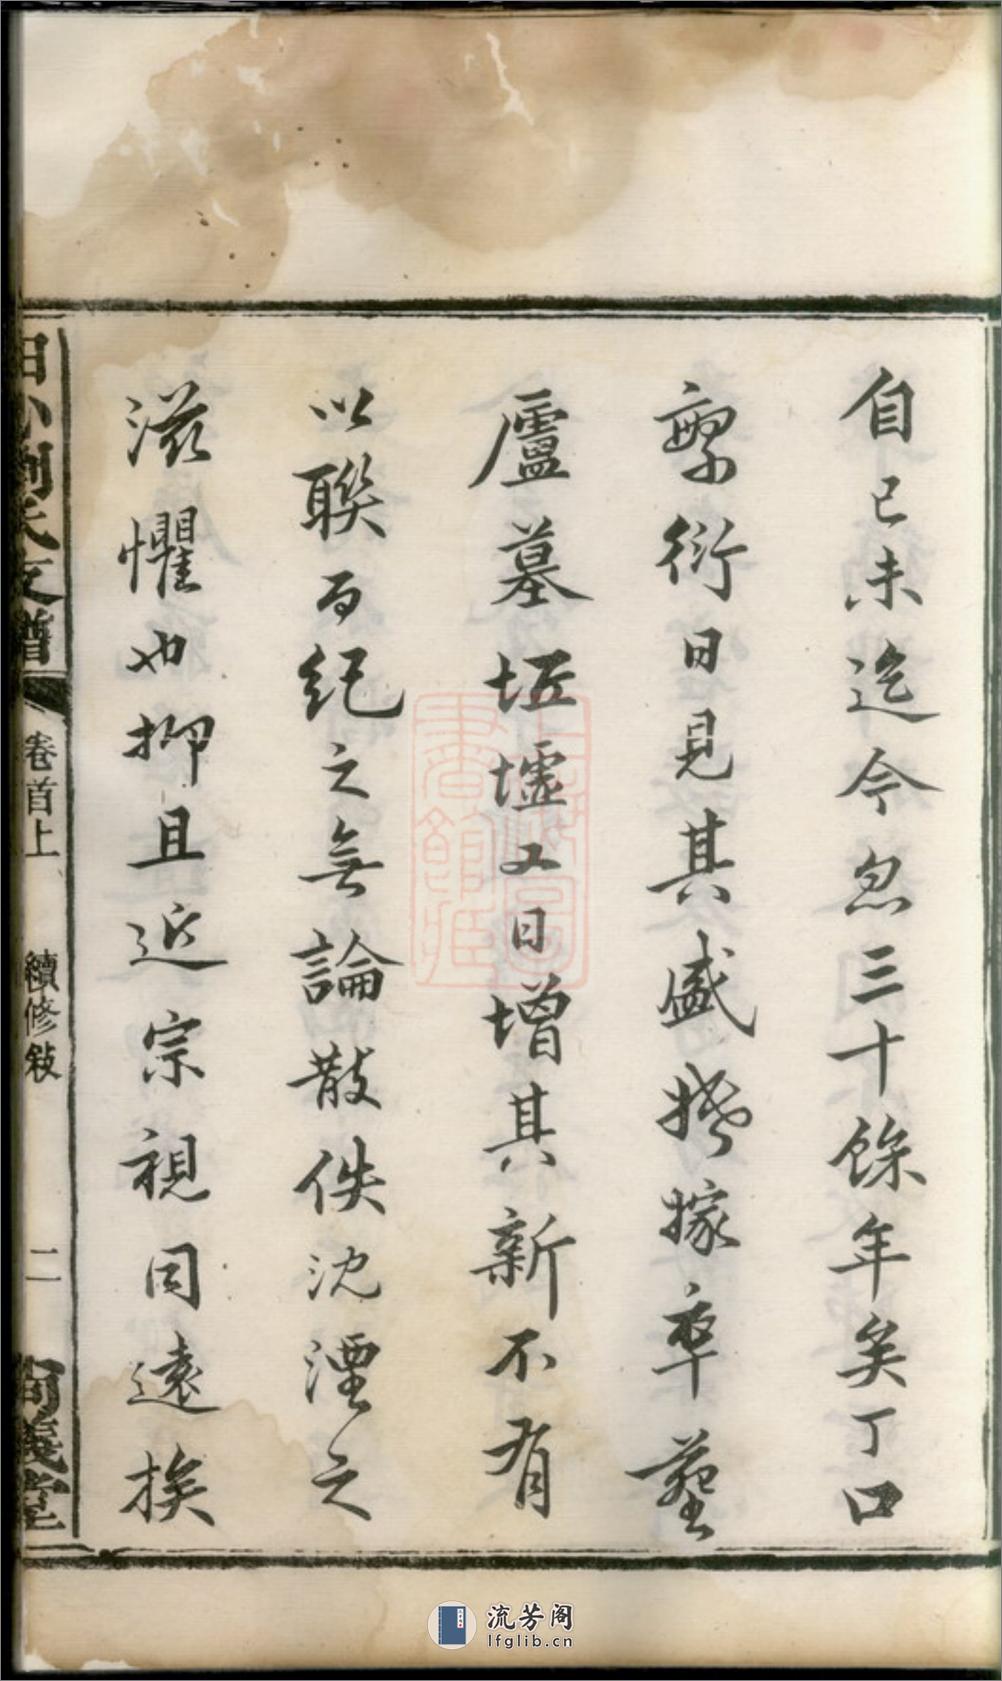 自己未迄今忽三十餘年矣丁口
繁衍日見其盛婚嫁卒塟
廬墓坵墟又日增其新不有
以聯而紀之無論散佚沈湮之
滋懼也抑且近宗視同遠族
劉氏支譜
卷首上
續修敍
二
義堂
流芳阁
lfglib.cn